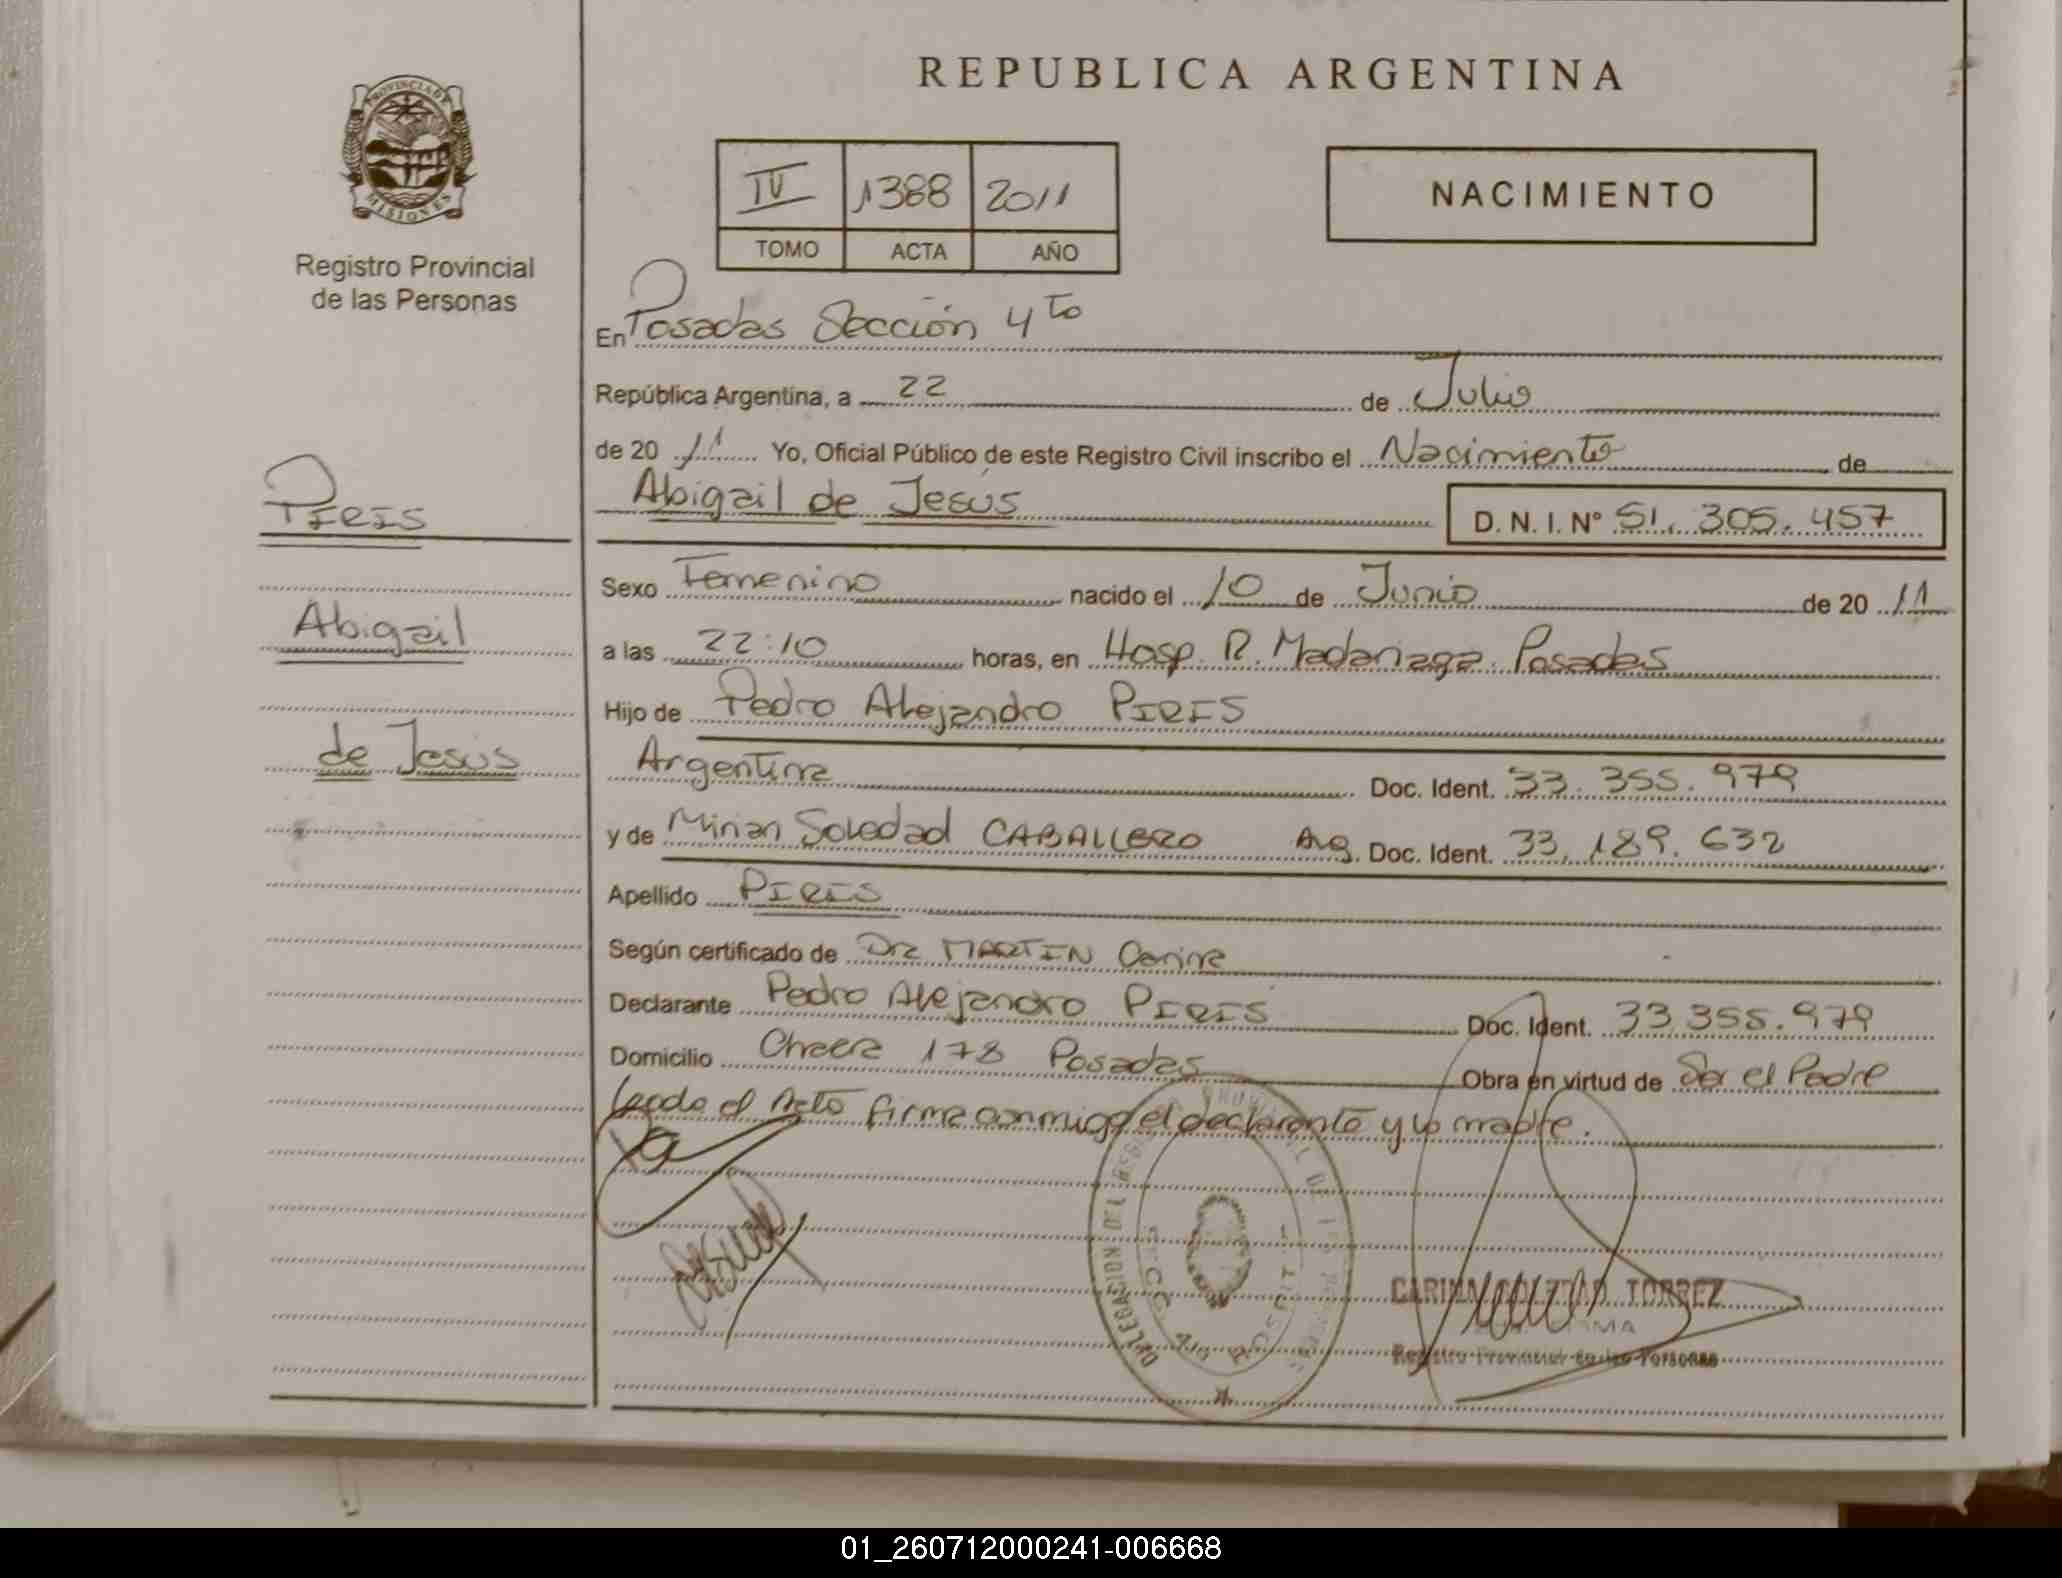 REPUBLICA ARGENTINA
PROVINCIA DE
MISIONES
Registro Provincial
de las Personas
IV 1388 2011
TOMO ACTA AÑO
NACIMIENTO
En Posadas Sección 4to
República Argentina, a 22 de Julio
de 20 11 Yo, Oficial Público de este Registro Civil inscribo el Nacimiento de
Abigail de Jesús D. N. I. Nº 51.305.457
PIRES
Abigail
de Jesús
Sexo Femenino nacido el 10 de Junio de 20 11
a las 22:10 horas, en Hosp. R. Madariaga. Posadas
Hijo de Pedro Alejandro PIRES
Argentina Doc. Ident. 33.355.979
y de Mirian Soledad CABALLERO Arg. Doc. Ident. 33.189.632
Apellido PIRES
Según certificado de Dra MARTIN Carina
Declarante Pedro Alejandro PIRES Doc. Ident. 33.355.979
Domicilio Chacra 178 Posadas Obra en virtud de Ser el Padre
Leido el Acto firma conmigo el declarante y la madre.
DELEGACION
CARINA TORREZ
Registro Provincial de las Personas
01_260712000241-006668